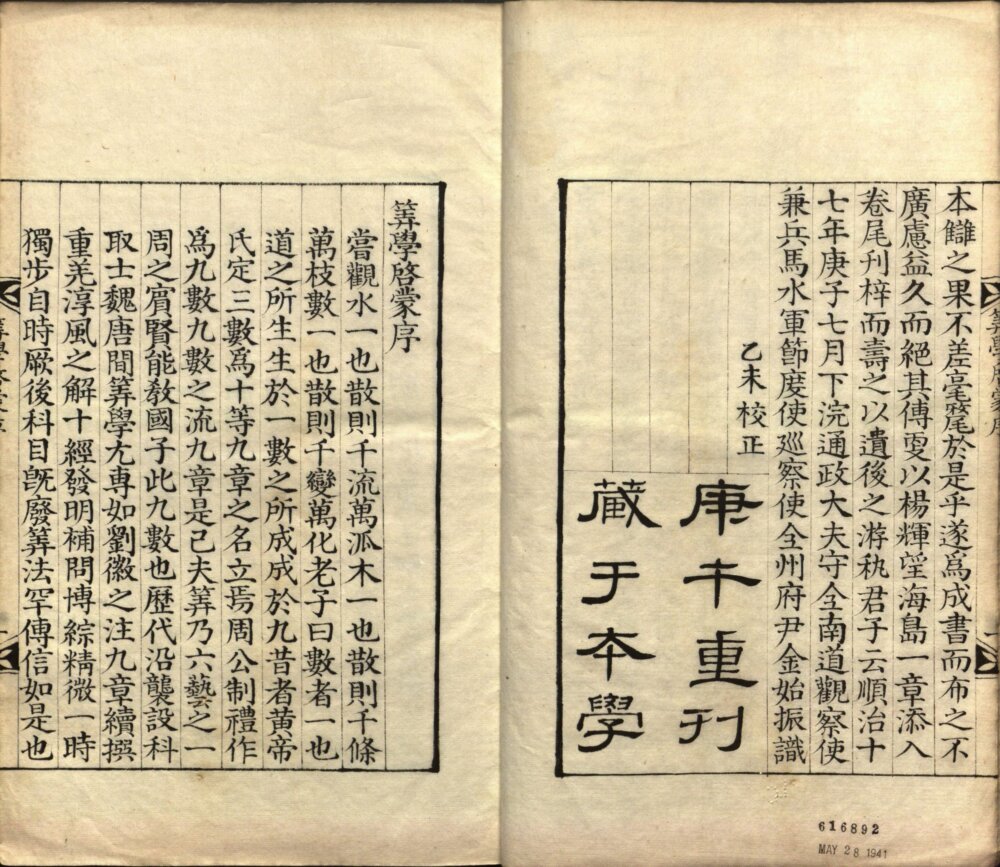 本讎之果不差毫釐於是乎遂爲成書而布之不
廣慮益久而絕其傳更以楊輝望海島一章添入
卷尾刊梓而壽之以遺後之游秇君子云順治十
七年庚子七月下浣通政大夫守全南道觀察使
兼兵馬水軍節度使廵察使全州府尹金始振識
乙未校正
庚午重刊
藏于本學
616892
MAY 28 1941
筭學啓蒙序
嘗觀水一也散則千流萬派木一也散則千條
萬枝數一也散則千變萬化老子曰數者一也
道之所生生於一數之所成成於九昔者黃帝
氏定三數爲十等九章之名立焉周公制禮作
爲九數九數之流九章是已夫筭乃六藝之一
周之賔賢能敎國子此九數也歷代沿襲設科
取士魏唐間筭學尤専如劉徽之注九章續撰
重羌淳風之解十經發明補問博綜精微一時
獨步自時厥後科目旣廢筭法罕傳信如是也